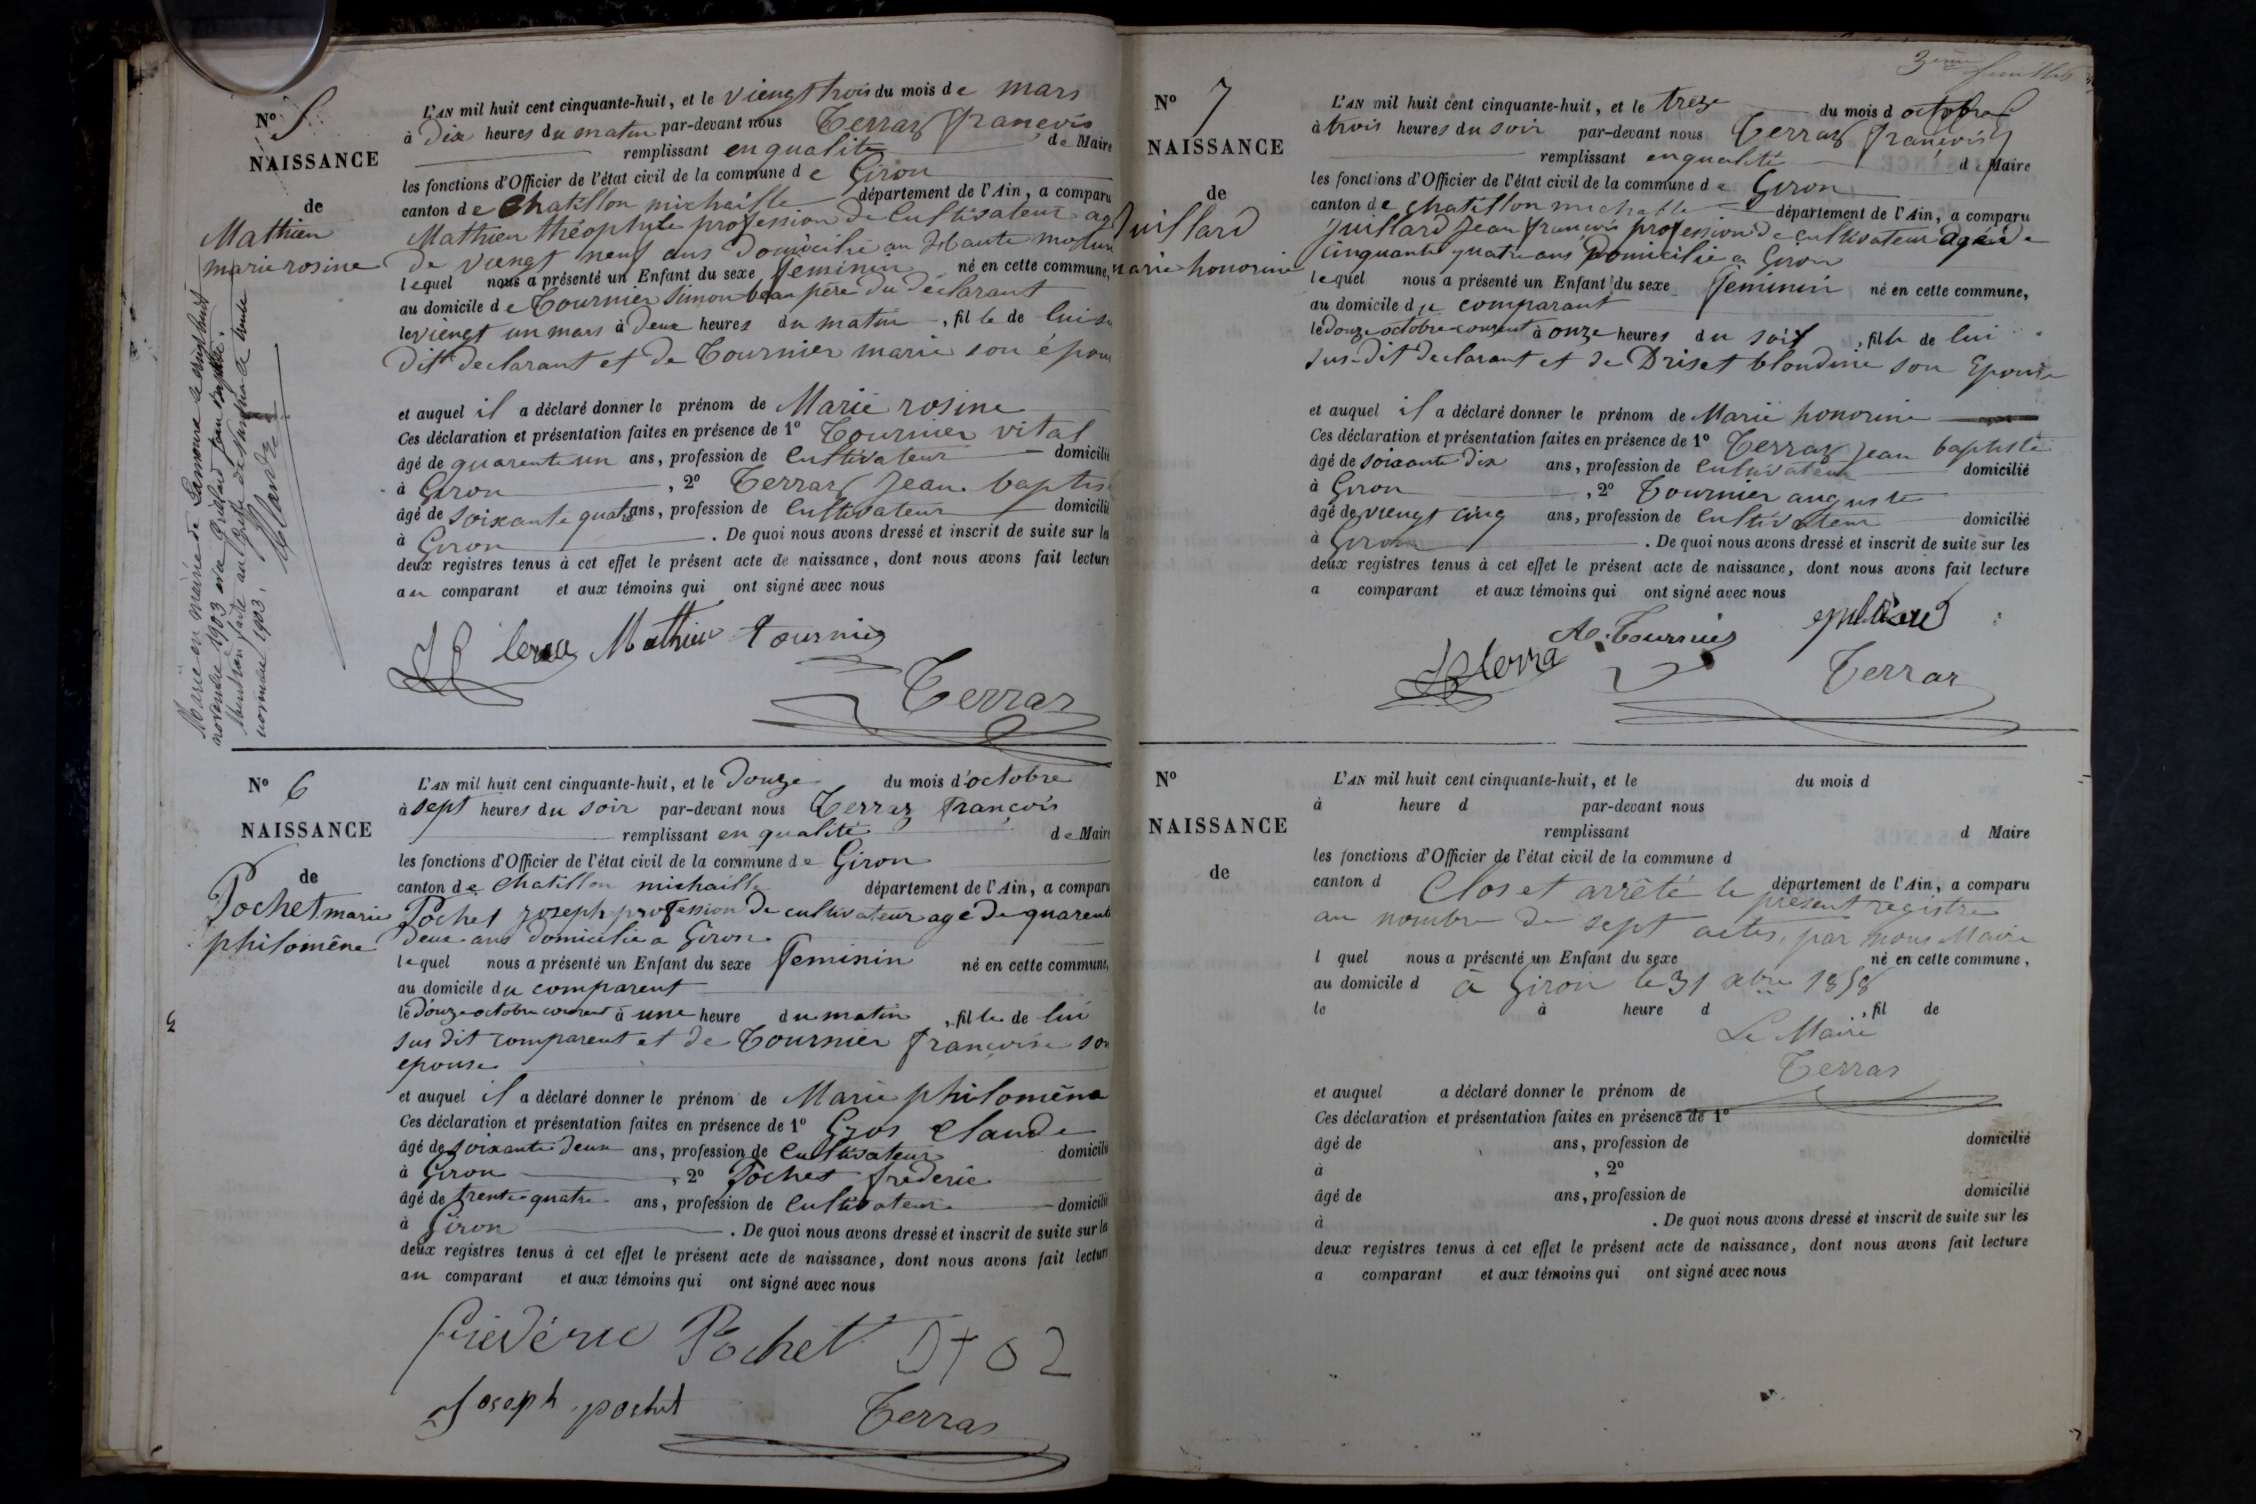 N° 5
NAISSANCE
de
Mathieu
marie rosine
L'AN mil huit cent cinquante-huit, et le viengt trois du mois de mars
à dix heures du matin par-devant nous Terraz françois
remplissant en qualité de Maire
les fonctions d'Officier de l'état civil de la commune de Giron
canton de Chatillon michaille département de l'Ain, a comparu
Mathieu théophile profession de Cultivateur
de viengt neuf ans domicilié au
lequel nous a présenté un Enfant du sexe feminin né en cette commune,
au domicile de Tournier Simon beau père du declarant
le viengt un mars à deux heures du matin, fille de lui su
dit declarant et de Tournier marie son épou
et auquel il a déclaré donner le prénom de Marie rosine
Ces déclaration et présentation faites en présence de 1° Tournier vital
âgé de quarente un ans, profession de Cultivateur domicilié
à Giron, 2° Terraz Jean baptis
âgé de soixante quatre ans, profession de Cultivateur domicilié
à Giron. De quoi nous avons dressé et inscrit de suite sur les
deux registres tenus à cet effet le présent acte de naissance, dont nous avons fait lecture
au comparant et aux témoins qui ont signé avec nous
Mathieu Tournier
Terraz
N° 6
NAISSANCE
de
Pochet marie
philomène
L'AN mil huit cent cinquante-huit, et le douze du mois d'octobre
à sept heures du soir par-devant nous Terraz françois
remplissant en qualité de Maire
les fonctions d'Officier de l'état civil de la commune de Giron
canton de Chatillon michaille département de l'Ain, a comparu
Pochet Joseph profession de cultivateur agé de quarente
deux ans domicilié a Giron
lequel nous a présenté un Enfant du sexe feminin né en cette commune,
au domicile du comparent
le douze octobre courent à une heure du matin, fille de lui
sus dit comparent et de Tournier françoise son
epouse
et auquel il a déclaré donner le prénom de Marie philomène
Ces déclaration et présentation faites en présence de 1° Gros Claude
âgé de soixante deux ans, profession de Cultivateur domicilié
à Giron, 2° Pochet frederic
âgé de trente quatre ans, profession de Cultivateur domicilié
à Giron. De quoi nous avons dressé et inscrit de suite sur les
deux registres tenus à cet effet le présent acte de naissance, dont nous avons fait lecture
au comparant et aux témoins qui ont signé avec nous
frédéric Pochet
Joseph pochet Terraz
3ème feuillet
N° 7
NAISSANCE
de
Juillard
marie honorine
L'AN mil huit cent cinquante-huit, et le treze du mois d octobre
à trois heures du soir par-devant nous Terraz françois
remplissant en qualité de Maire
les fonctions d'Officier de l'état civil de la commune de Giron
canton de Chatillon michaille département de l'Ain, a comparu
Juillard Jean françois profession de cultivateur agé de
cinquante quatre ans Domicilié a Giron
lequel nous a présenté un Enfant du sexe feminin né en cette commune,
au domicile du comparant
le douze octobre courent à onze heures du soir, fille de lui
sus-dit declarant et de Driset blondine son Epouse
et auquel il a déclaré donner le prénom de Marie honorine
Ces déclaration et présentation faites en présence de 1° Terraz Jean baptiste
âgé de soixante dix ans, profession de Cultivateur domicilié
à Giron, 2° Tournier auguste
âgé de viengt cinq ans, profession de Cultivateur domicilié
à Giron. De quoi nous avons dressé et inscrit de suite sur les
deux registres tenus à cet effet le présent acte de naissance, dont nous avons fait lecture
a comparant et aux témoins qui ont signé avec nous
A. Tournier
Terraz
N°
NAISSANCE
de
L'AN mil huit cent cinquante-huit, et le du mois d
à heure d par-devant nous
remplissant d Maire
les fonctions d'Officier de l'état civil de la commune d
canton d département de l'Ain, a comparu
Clos et arrêté le présent registre
au nombre de sept actes, par nous Maire
l quel nous a présenté un Enfant du sexe né en cette commune,
au domicile d
à Giron le 31 xbre 1858
le à heure d, fil de
Le Maire
Terraz
et auquel a déclaré donner le prénom de
Ces déclaration et présentation faites en présence de 1°
âgé de ans, profession de domicilié
à, 2°
âgé de ans, profession de domicilié
à. De quoi nous avons dressé et inscrit de suite sur les
deux registres tenus à cet effet le présent acte de naissance, dont nous avons fait lecture
a comparant et aux témoins qui ont signé avec nous